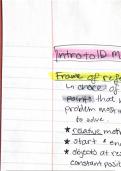 Intro to 1D M
Frame of ref
is choice of
points that
problem most
to solve.
★ relative mot
★ start & en
★ objects at res
constant posit